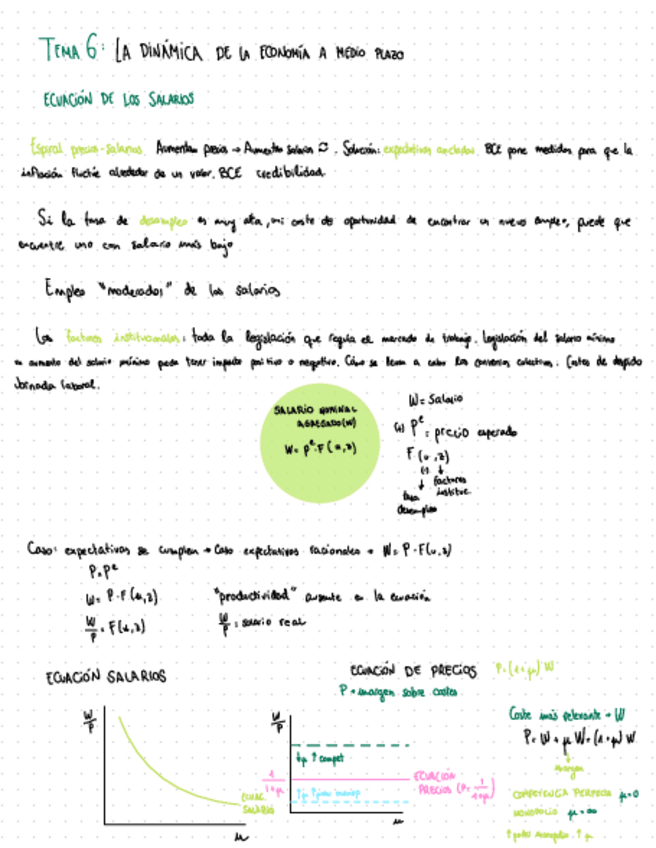 TEMA 6: LA DINÁMICA DE LA ECONOMÍA A MEDIO PLAZO
ECUACIÓN DE LOS SALARIOS
Espiral precios-salarios. Aumentan precios → Aumentan salarios. Solución: expectativas ancladas. BCE pone medidas para que la
inflación fluctúe alrededor de un valor. BCE credibilidad.
Si la tasa de desempleo es muy alta, mi coste de oportunidad de encontrar un nuevo empleo, puede que
encuentre uno con salario más bajo
Empleo "moderador" de los salarios
Los factores institucionales: toda la legislación que regula el mercado de trabajo. Legislación del salario mínimo
un aumento del salario mínimo puede tener impacto positivo o negativo. Cómo se llevan a cabo los convenios colectivos. Costes de despido
Jornada laboral.
SALARIO NOMINAL
AGREGADO (W)
W = P^e · F(u,z)
W = Salario
(+) P^e = precio esperado
F(u,z)
(-)
factores
institue.
tasa
desempleo
Caso: expectativas se cumplen → Caso expectativas racionales → W = P · F(u,z)
P = P^e
W = P · F(u,z)
"productividad" ausente en la ecuación
W/P = F(u,z)
W/P = salario real
ECUACIÓN SALARIOS
ECUACIÓN DE PRECIOS P = (1+μ) W
P → margen sobre costes
W/P
ECUAC.
SALARIOS
u
W/P
↓μ ↑ compet
1/1+μ
ECUACIÓN
PRECIOS (P = 1/1+μ)
u
Coste más relevante → W
P = W + μ W = (1+μ) W
margen
COMPETENCIA PERFECTA μ=0
MONOPOLIO μ=∞
↑ poder monopolio · ↑ μ